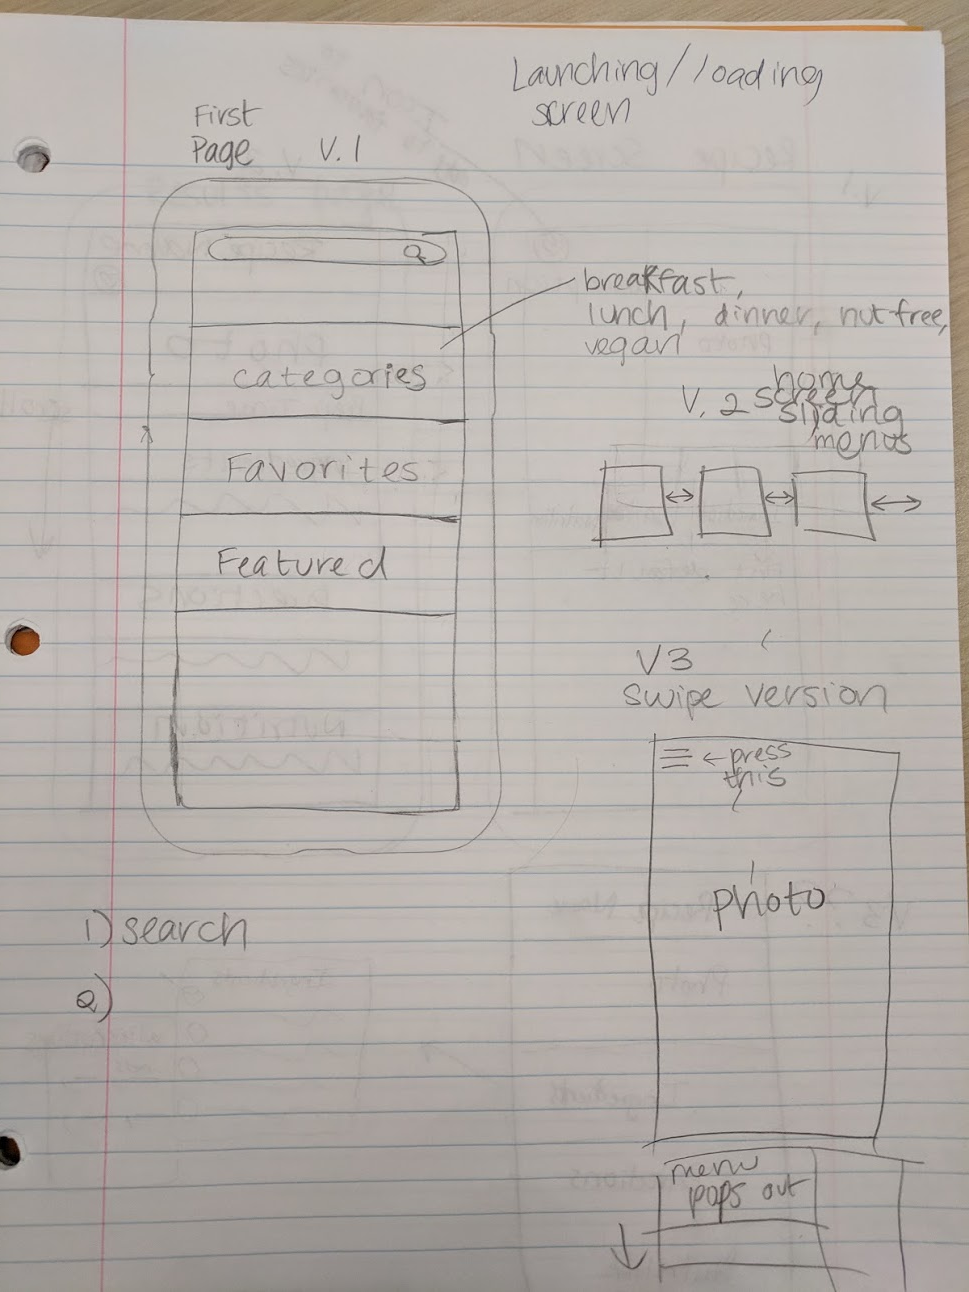 Launching/loading
screen
First
Page V.1
categories
Favorites
Featured
breakfast,
lunch, dinner, nut-free,
vegan
V.2 home
screen
sliding
menus
V3
swipe version
← press
this
photo
menu
pops out
1) search
2)